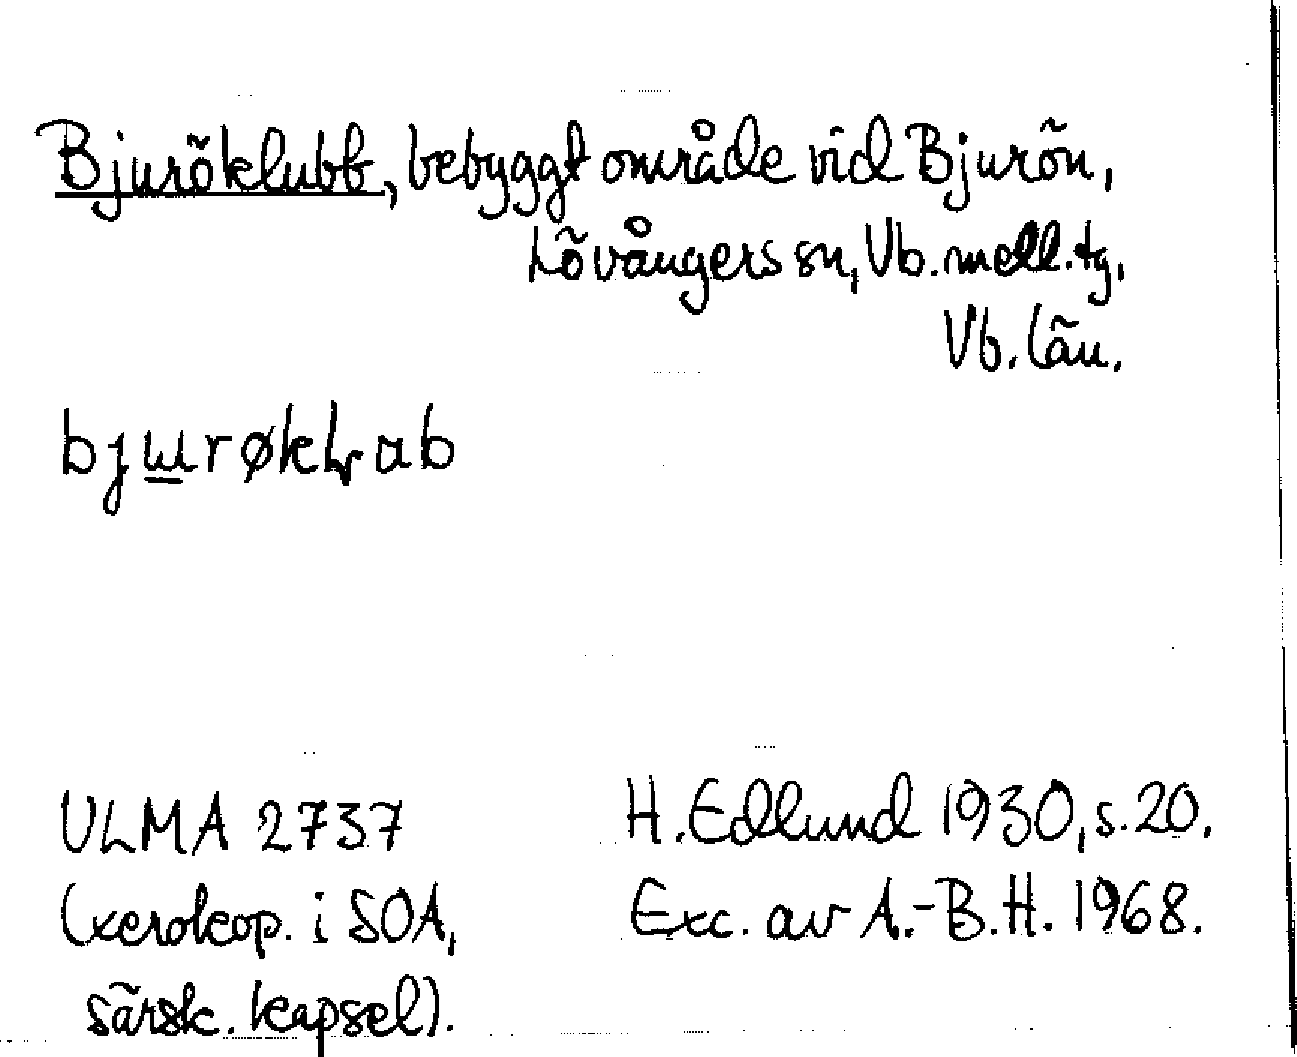 Bjuröklubb, bebyggt område vid Bjurön,
Lövångers sn, Vb. mell. tg,
Vb. län.
ULMA 2737
(xerokop. i SOA,
särsk. kapsel).
H. Edlund 1930, s. 20.
Exc. av A.-B.H. 1968.